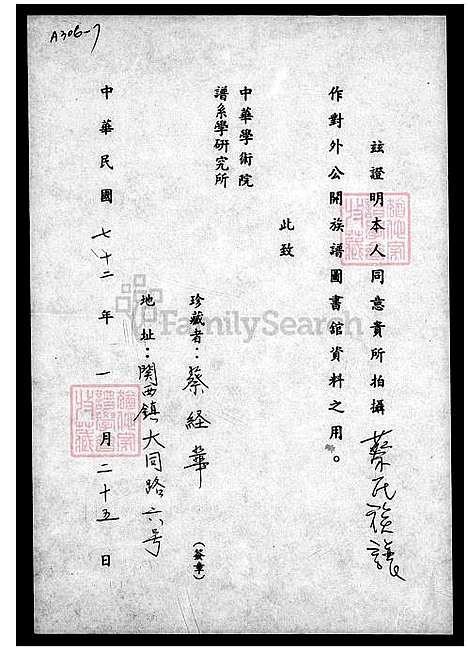 A306-7
茲證明本人同意貴所拍攝蔡氏族譜
作對外公開族譜圖書館資料之用。
此致
中華學術院
譜系學研究所
珍藏者：蔡経華(簽章)
地址：関西鎮大同路六号
中華民國七十二年一月二十五日
FamilySearch